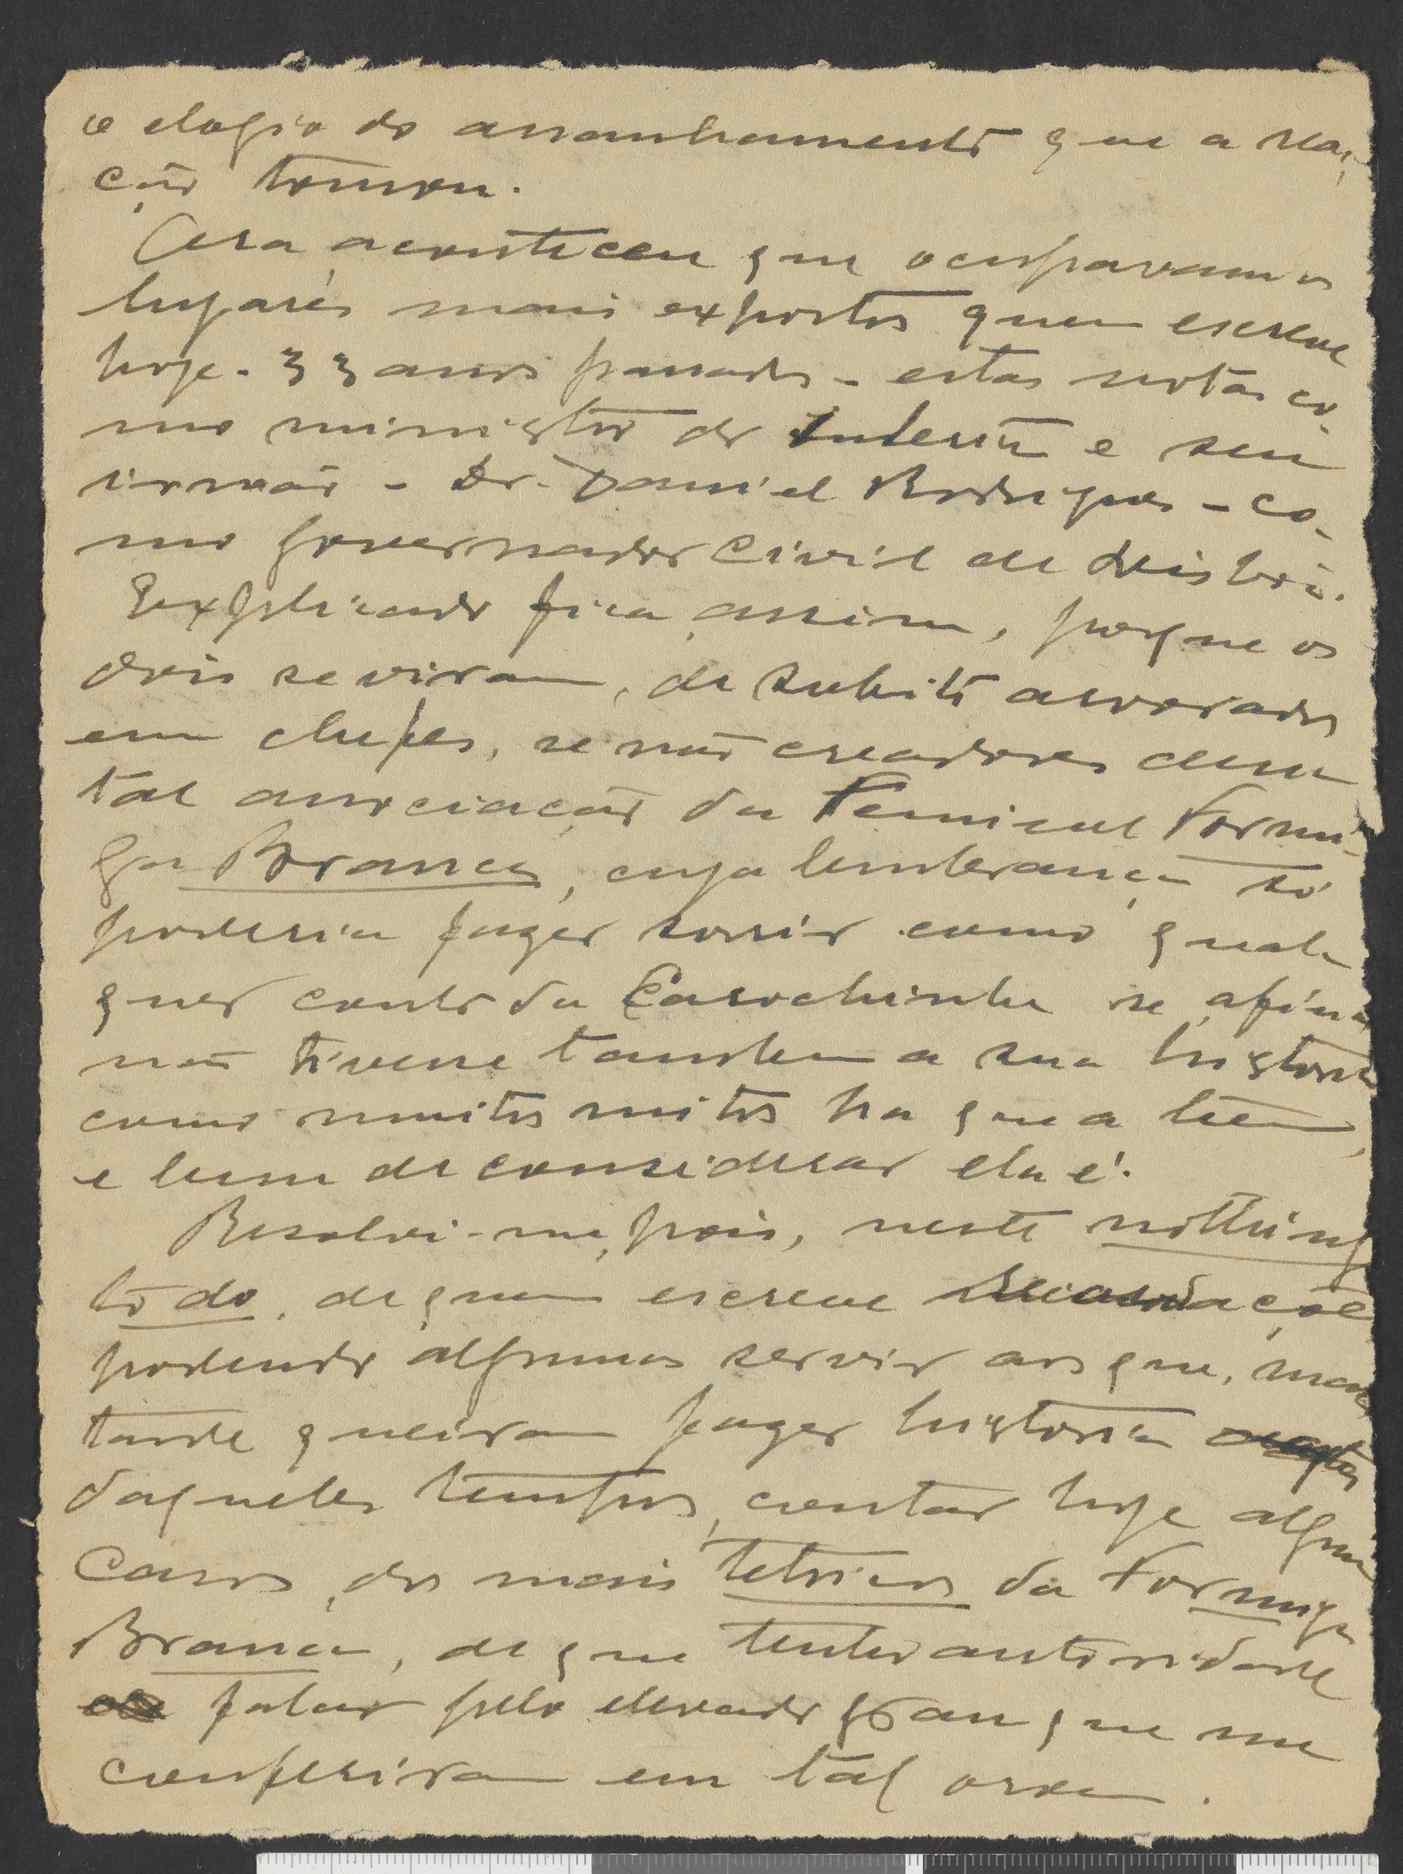 o elogio do assambramento que a rea-
ção tomou.
Ora aconteceu que ocupavamos
lugares mais expostos quem escreve
hoje - 33 anos passados - estas notas co-
mo ministro do Interior e seu
irmão - Dr. Daniel Rodrigues - co-
mo governador civil de Lisboa.
Explicado fica, assim, porque os
dois se viram, de subito arvorados
em chefes, se não creadores dessa
tal associação da temivel Formi-
ga Branca, cuja lembrança só
poderia fazer sorrir como qual-
quer conto da Carochinha se, afinal
não tivesse tambem a sua historia
como muitos mitos ha que a teem,
e bem de considerar ela é.
Resolvi-me, pois, neste
de quem escreve recordações
podendo algumas servir aos que, mais
tarde queiram fazer historia
daqueles tempos, contar hoje alguns
casos, dos mais tetricos da Formiga
Branca, de que tenho autoridade
falar pelo elevado grau que me
conferiram em tal ordem.